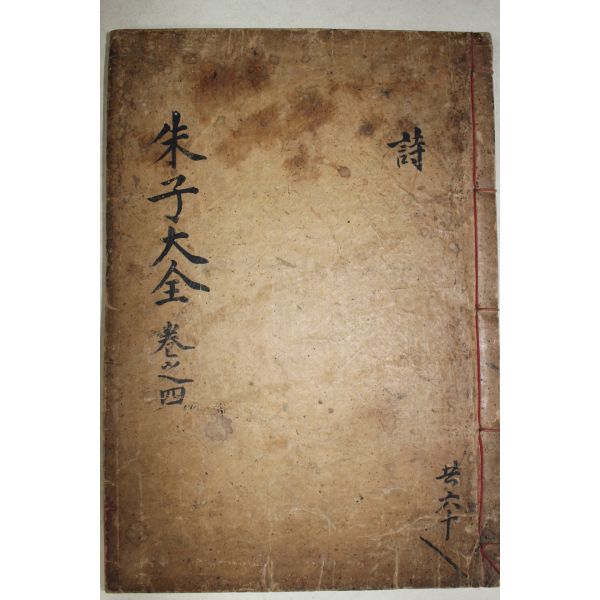 詩
朱子大全 卷之四
共六十